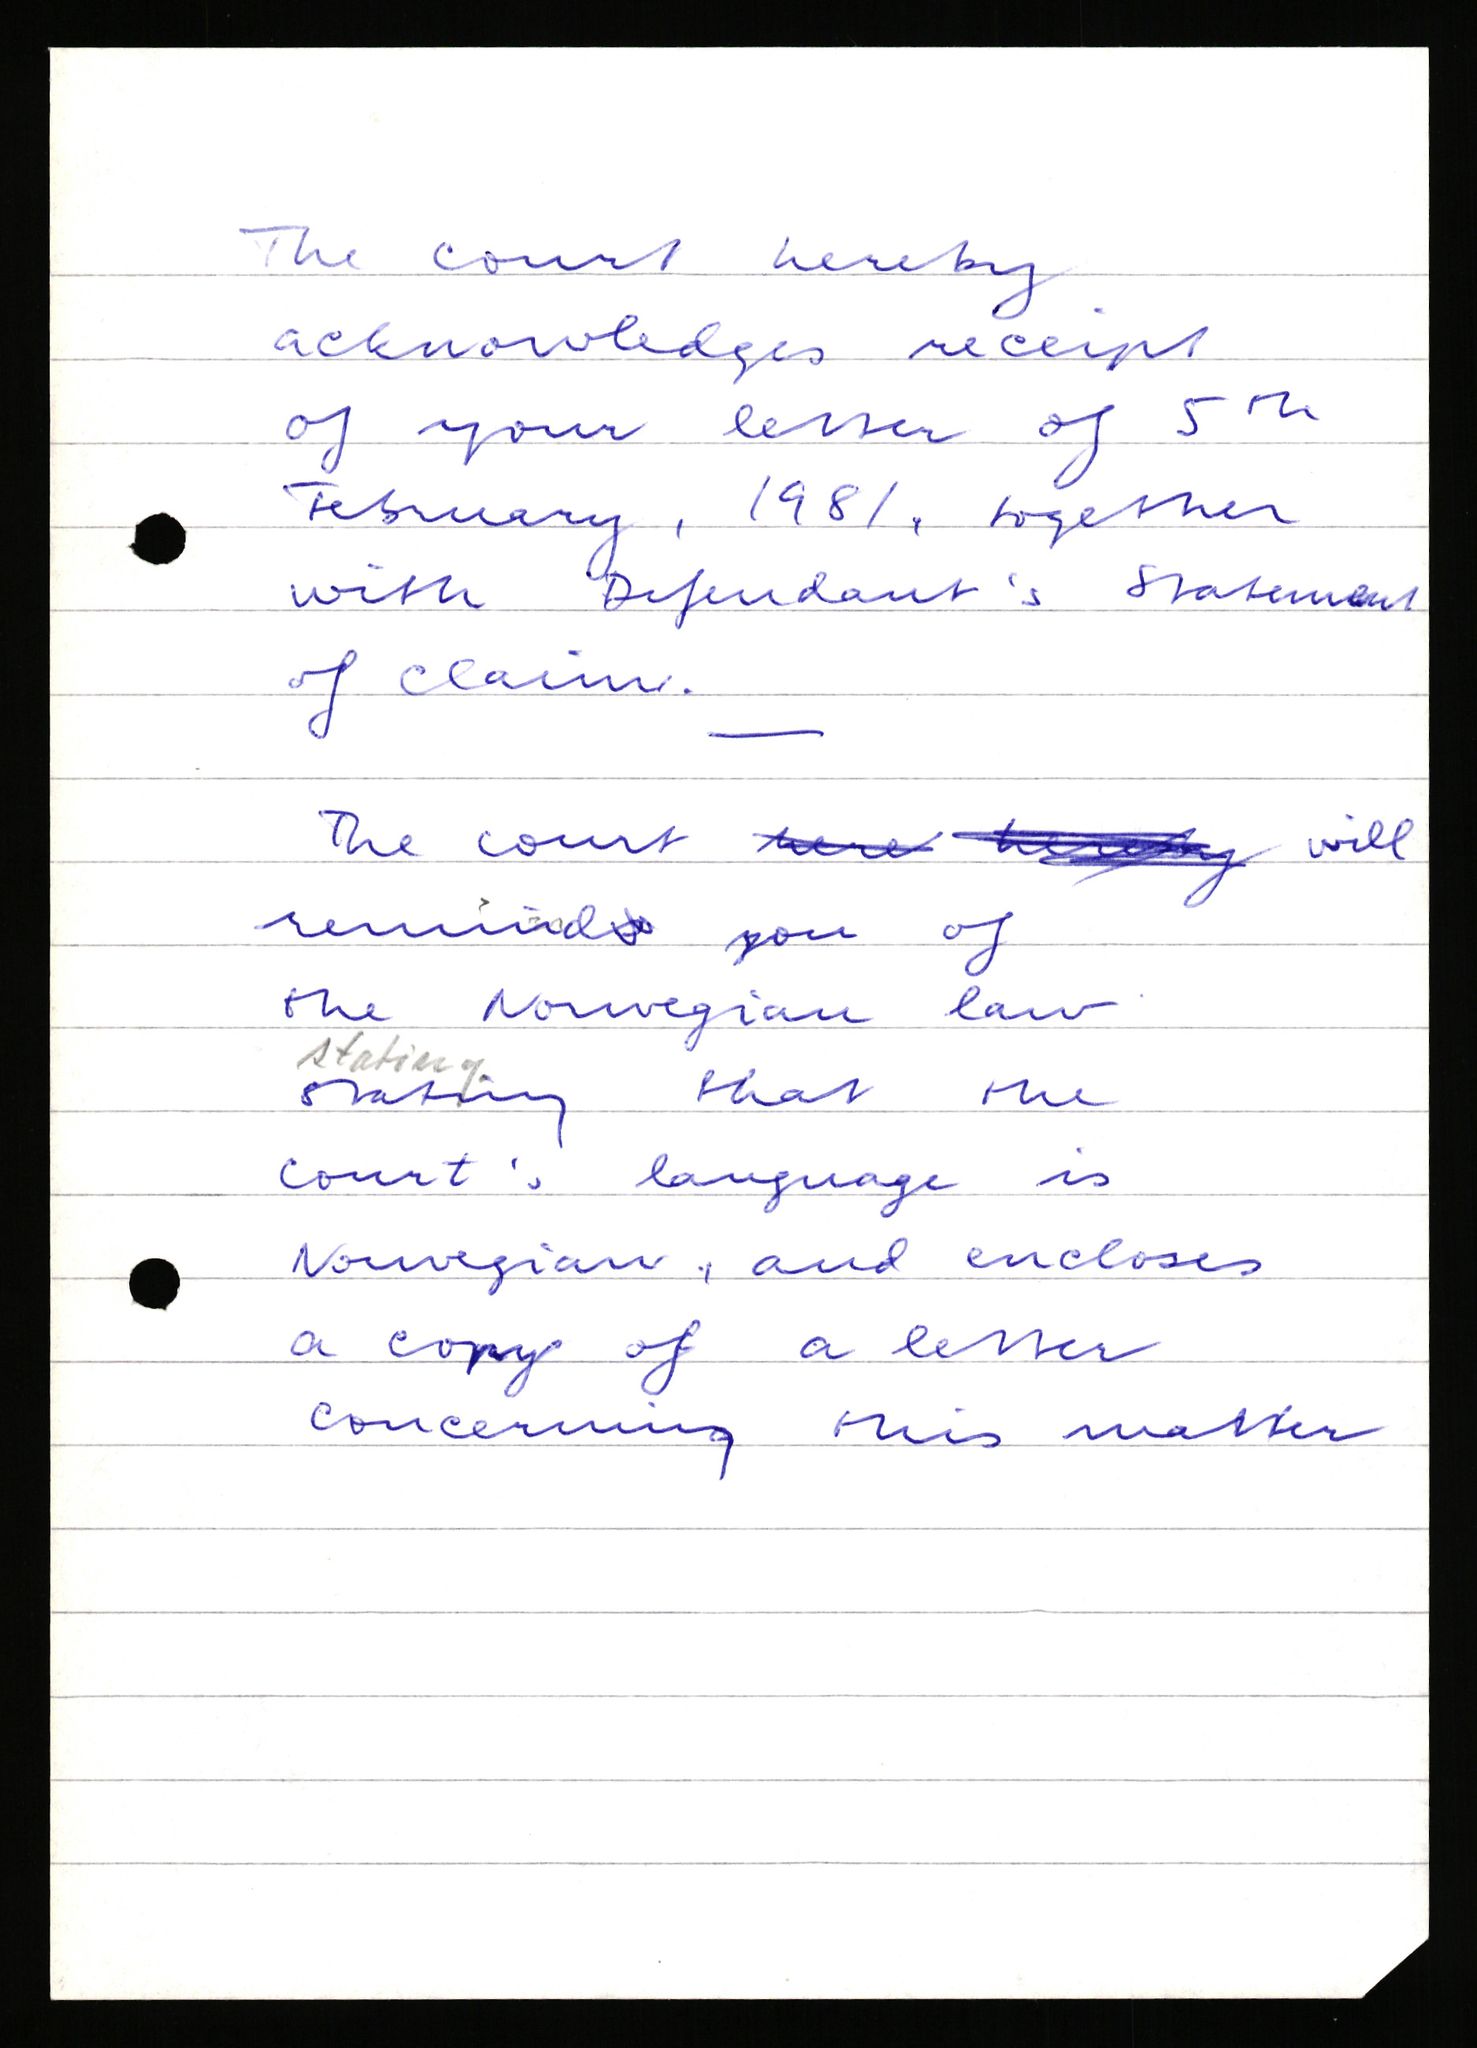 The court hereby
acknowledges receipt
of your letter of 5th
February, 1981, together
with Defendant's Statement
of claim.
The court here hereby will
remind you of
the Norwegian law
stating
stating that the
court's language is
Norwegian, and encloses
a copy of a letter
concerning this matter